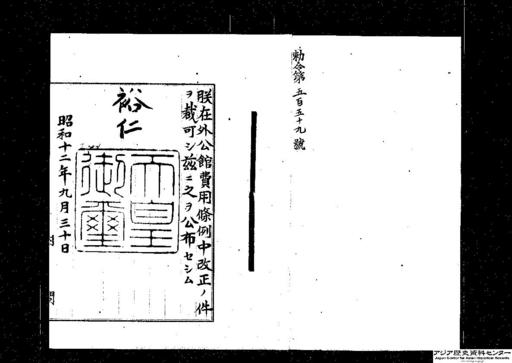 勅令第五百五十九號
朕在外公館費用條例中改正ノ件
ヲ裁可シ茲ニ之ヲ公布セシム
裕仁
天皇御璽
昭和十二年九月三十日
アジア歴史資料センター
Japan Center for Asian Historical Records